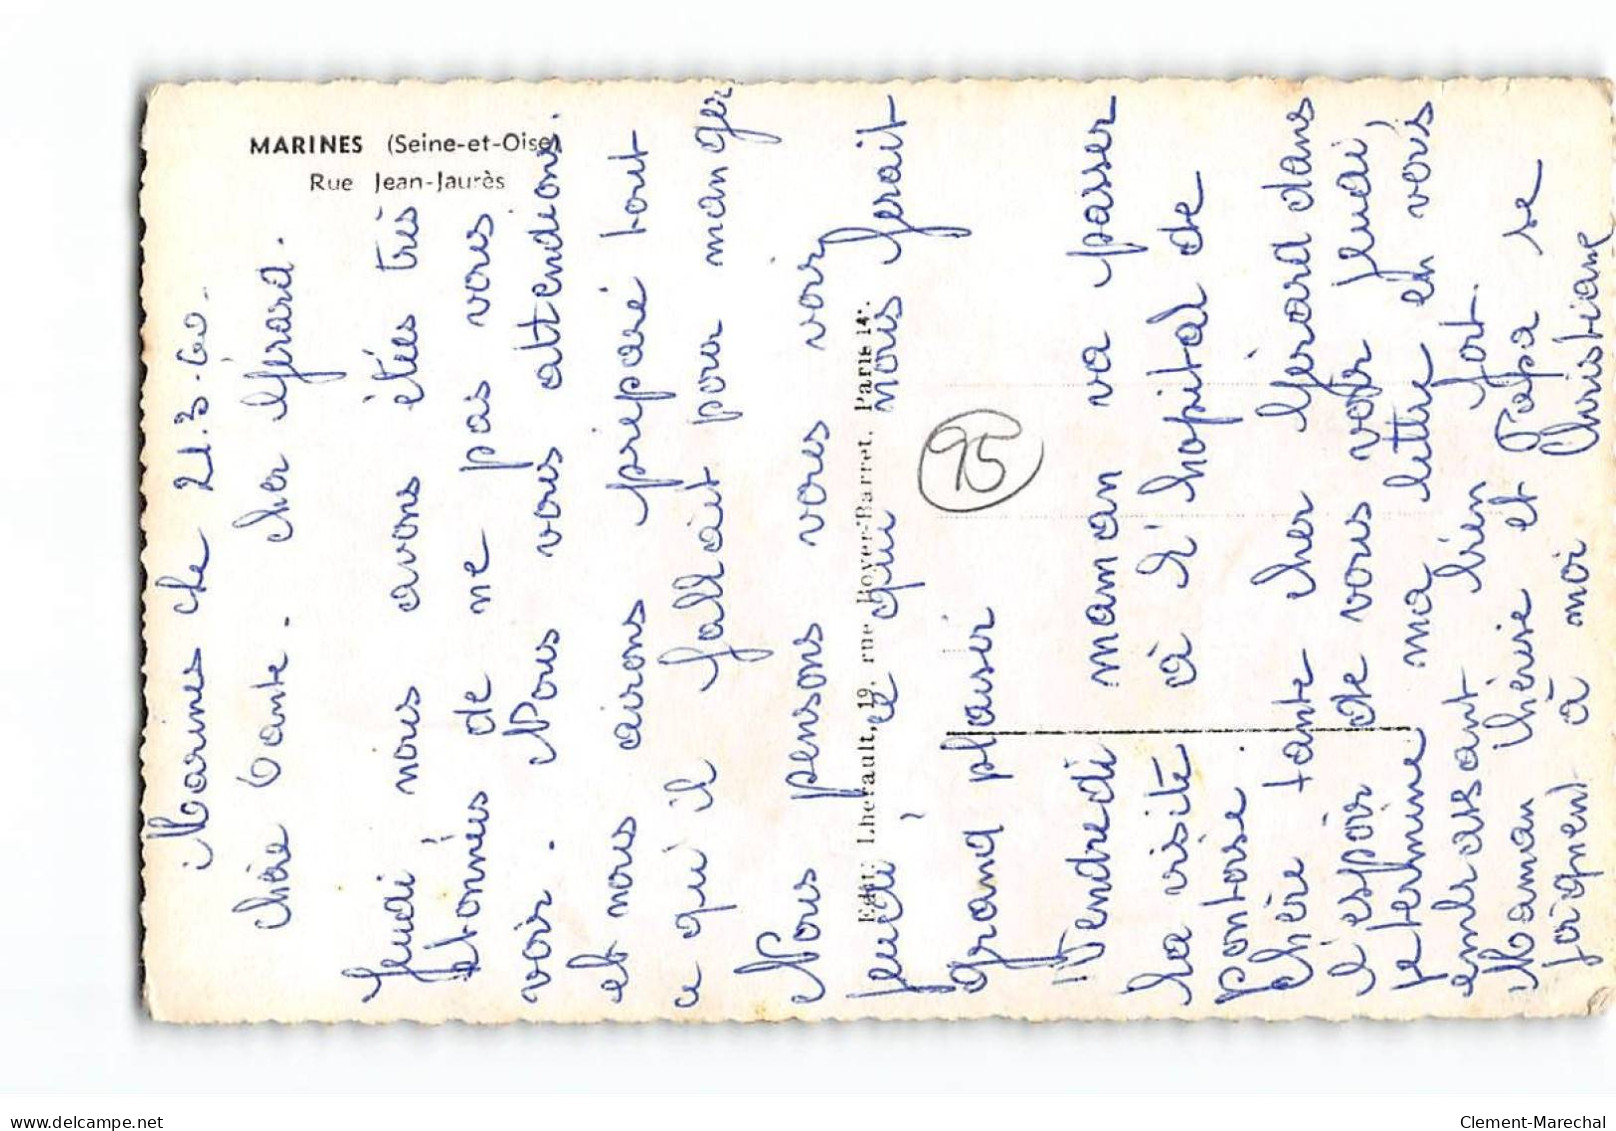 MARINES (Seine-et-Oise)
Rue Jean-Jaurès
Marines le 21.3.60.
Chère Tante. Cher Gérard.
Jeudi nous avons étées très
étonnées de ne pas vous
voir. Nous vous attendions.
et nous airons préparé tout
ce qu'il fallait pour manger
Nous pensons vous voir
jeudi, ce qui nous ferait
grand plaisir
Vendredi maman va passer
la visite à l'hopital de
Pontoise.
Chère tante cher Gérard dans
l'espoir de vous voir jeudi,
je termine ma lettre en vous
embrassant bien fort.
Maman thérèse et Papa se
joignent à moi Christiane
Edit: Lherault, 19, rue Boyer-Barret, Paris 14e.
95
delcampe.net
Clement-Marechal